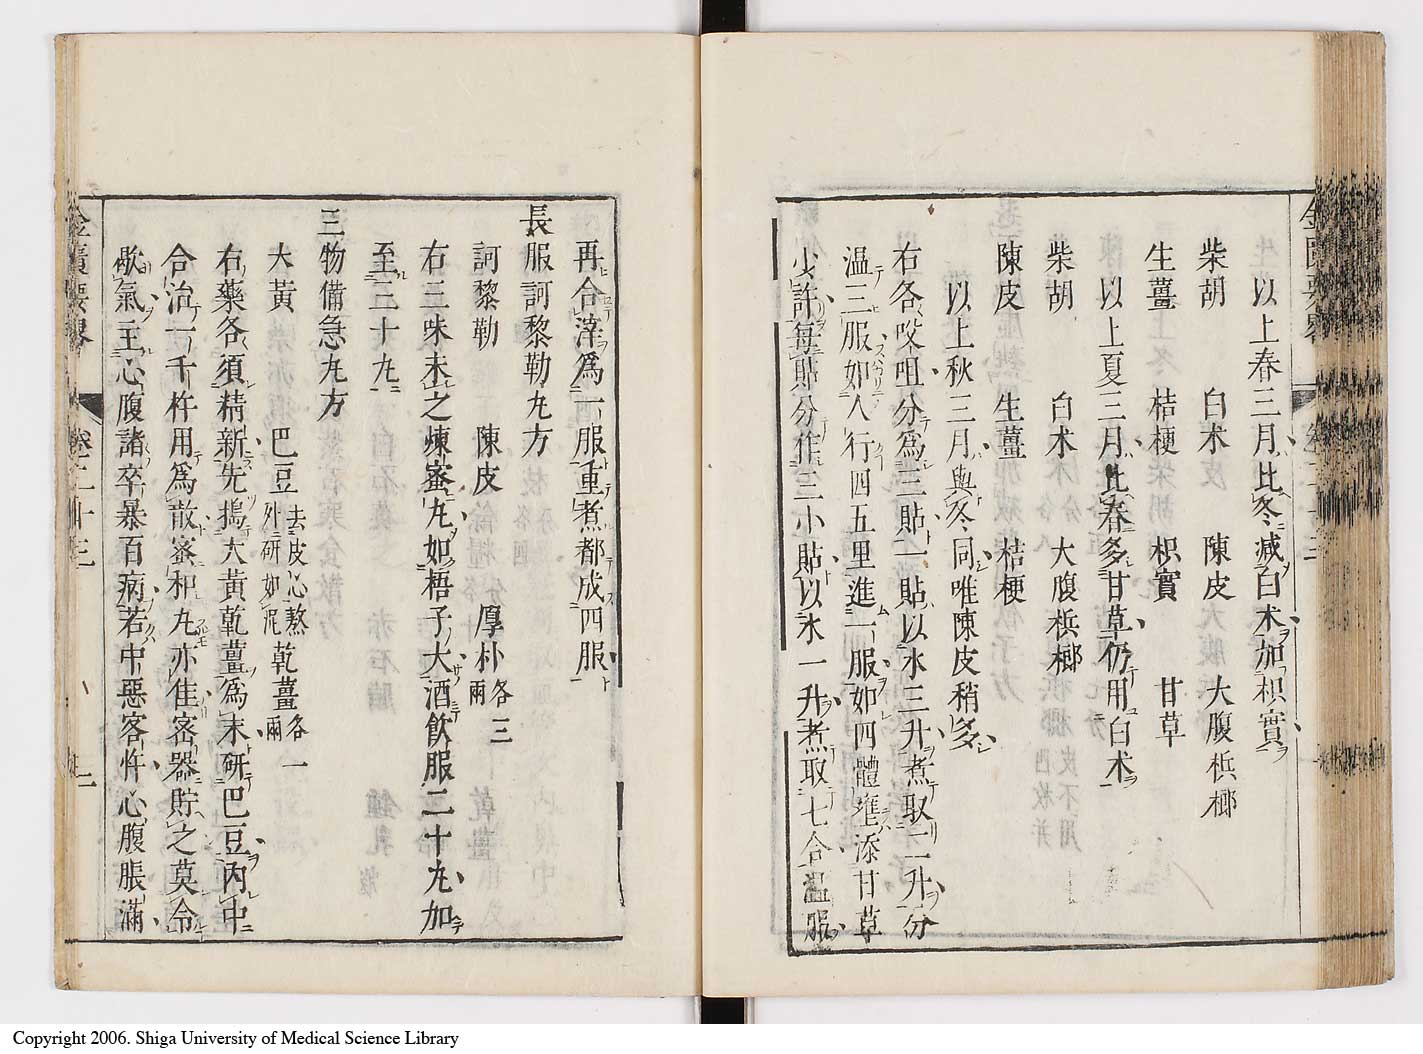 以上春三月比冬減白朮加枳實
柴胡 白朮 陳皮 大腹檳榔
生薑 桔梗 枳實 甘草
以上夏三月比春多甘草仍用白朮
柴胡 白朮 大腹檳榔
陳皮 生薑 桔梗
以上秋三月與冬同唯陳皮稍多
右各㕮咀分爲三貼一貼以水三升煮取二升分
温三服如人行四五里進一服如四體壅添甘草
少許每貼分作三小貼以水一升煮取七合温服
再合滓爲一服重煮都成四服
長服訶黎勒丸方
訶黎勒 陳皮 厚朴各三兩
右三味末之煉蜜丸如梧子大酒飲服二十丸加
至三十丸
三物備急丸方
大黃 巴豆去皮心熬外研如泥 乾薑各一兩
右藥各須精新先搗大黃乾薑爲末研巴豆内中
合治一千杵用爲散蜜和丸亦佳密器貯之莫令
歇氣主心腹諸卒暴百病若中惡客忤心腹脹滿
金匱要略 卷二十三
Copyright 2006. Shiga University of Medical Science Library